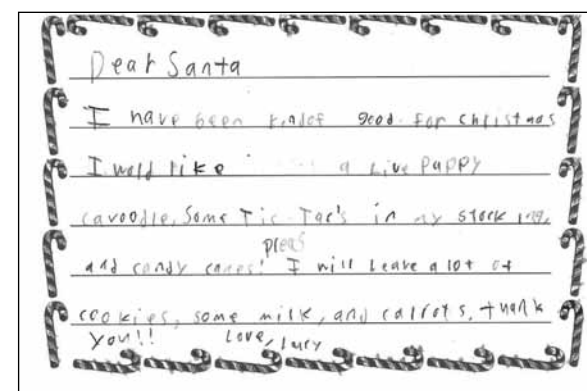 Dear Santa
I have been kindof good. For christmas
I wold like a live puppy
cavoodle, Some Tic-Tac's in my stocking,
pleas
and candy canes! I will leave a lot of
cookies, some milk, and carrots, thank
you!! Love, Lucy